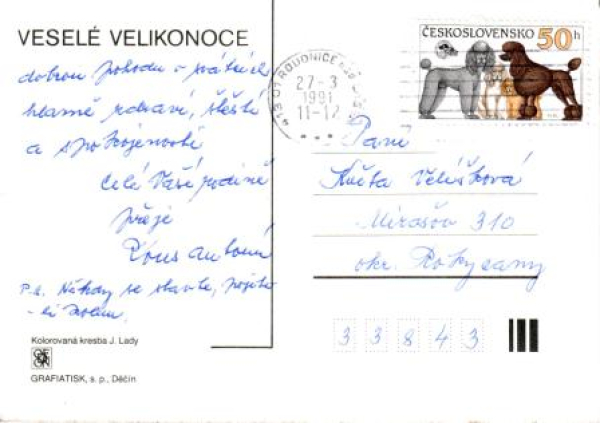 VESELÉ VELIKONOCE
dobrou pohodu o svátcích
hlavně zdraví, štěstí
a spokojenosti
celé Vaší rodině
přeje
Antonín
P.S. Někdy se stavte, pojedete
-li kolem.
Kolorovaná kresba J. Lady
GRAFIATISK, s. p., Děčín
ČESKOSLOVENSKO 50h
413 01 ROUDNICE NAD
27.-3
1991
11-12
Paní
Květa Velíšková
Mirošov 310
okr. Rokycany
33843